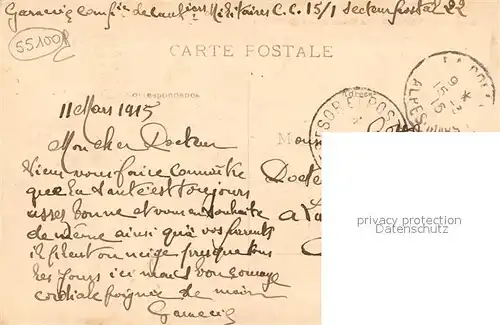 Garacciz Conf^ie de Laubiers Militaires C.C. 15/1 Secteur Postal 22
55100
CARTE POSTALE
Correspondance
Adresse
11 Mars 1915
Mon cher Docteur
Viens vous faire connaitre
que la santé est toujours
asses bonne et vous en souhaite
de même ainsi qu'à vos parents
il pleut ou neige presque tous
les jours ici mais bon courage
cordiale poignée de main
TRESOR ET POSTES
Docte
privacy protection
Datenschutz